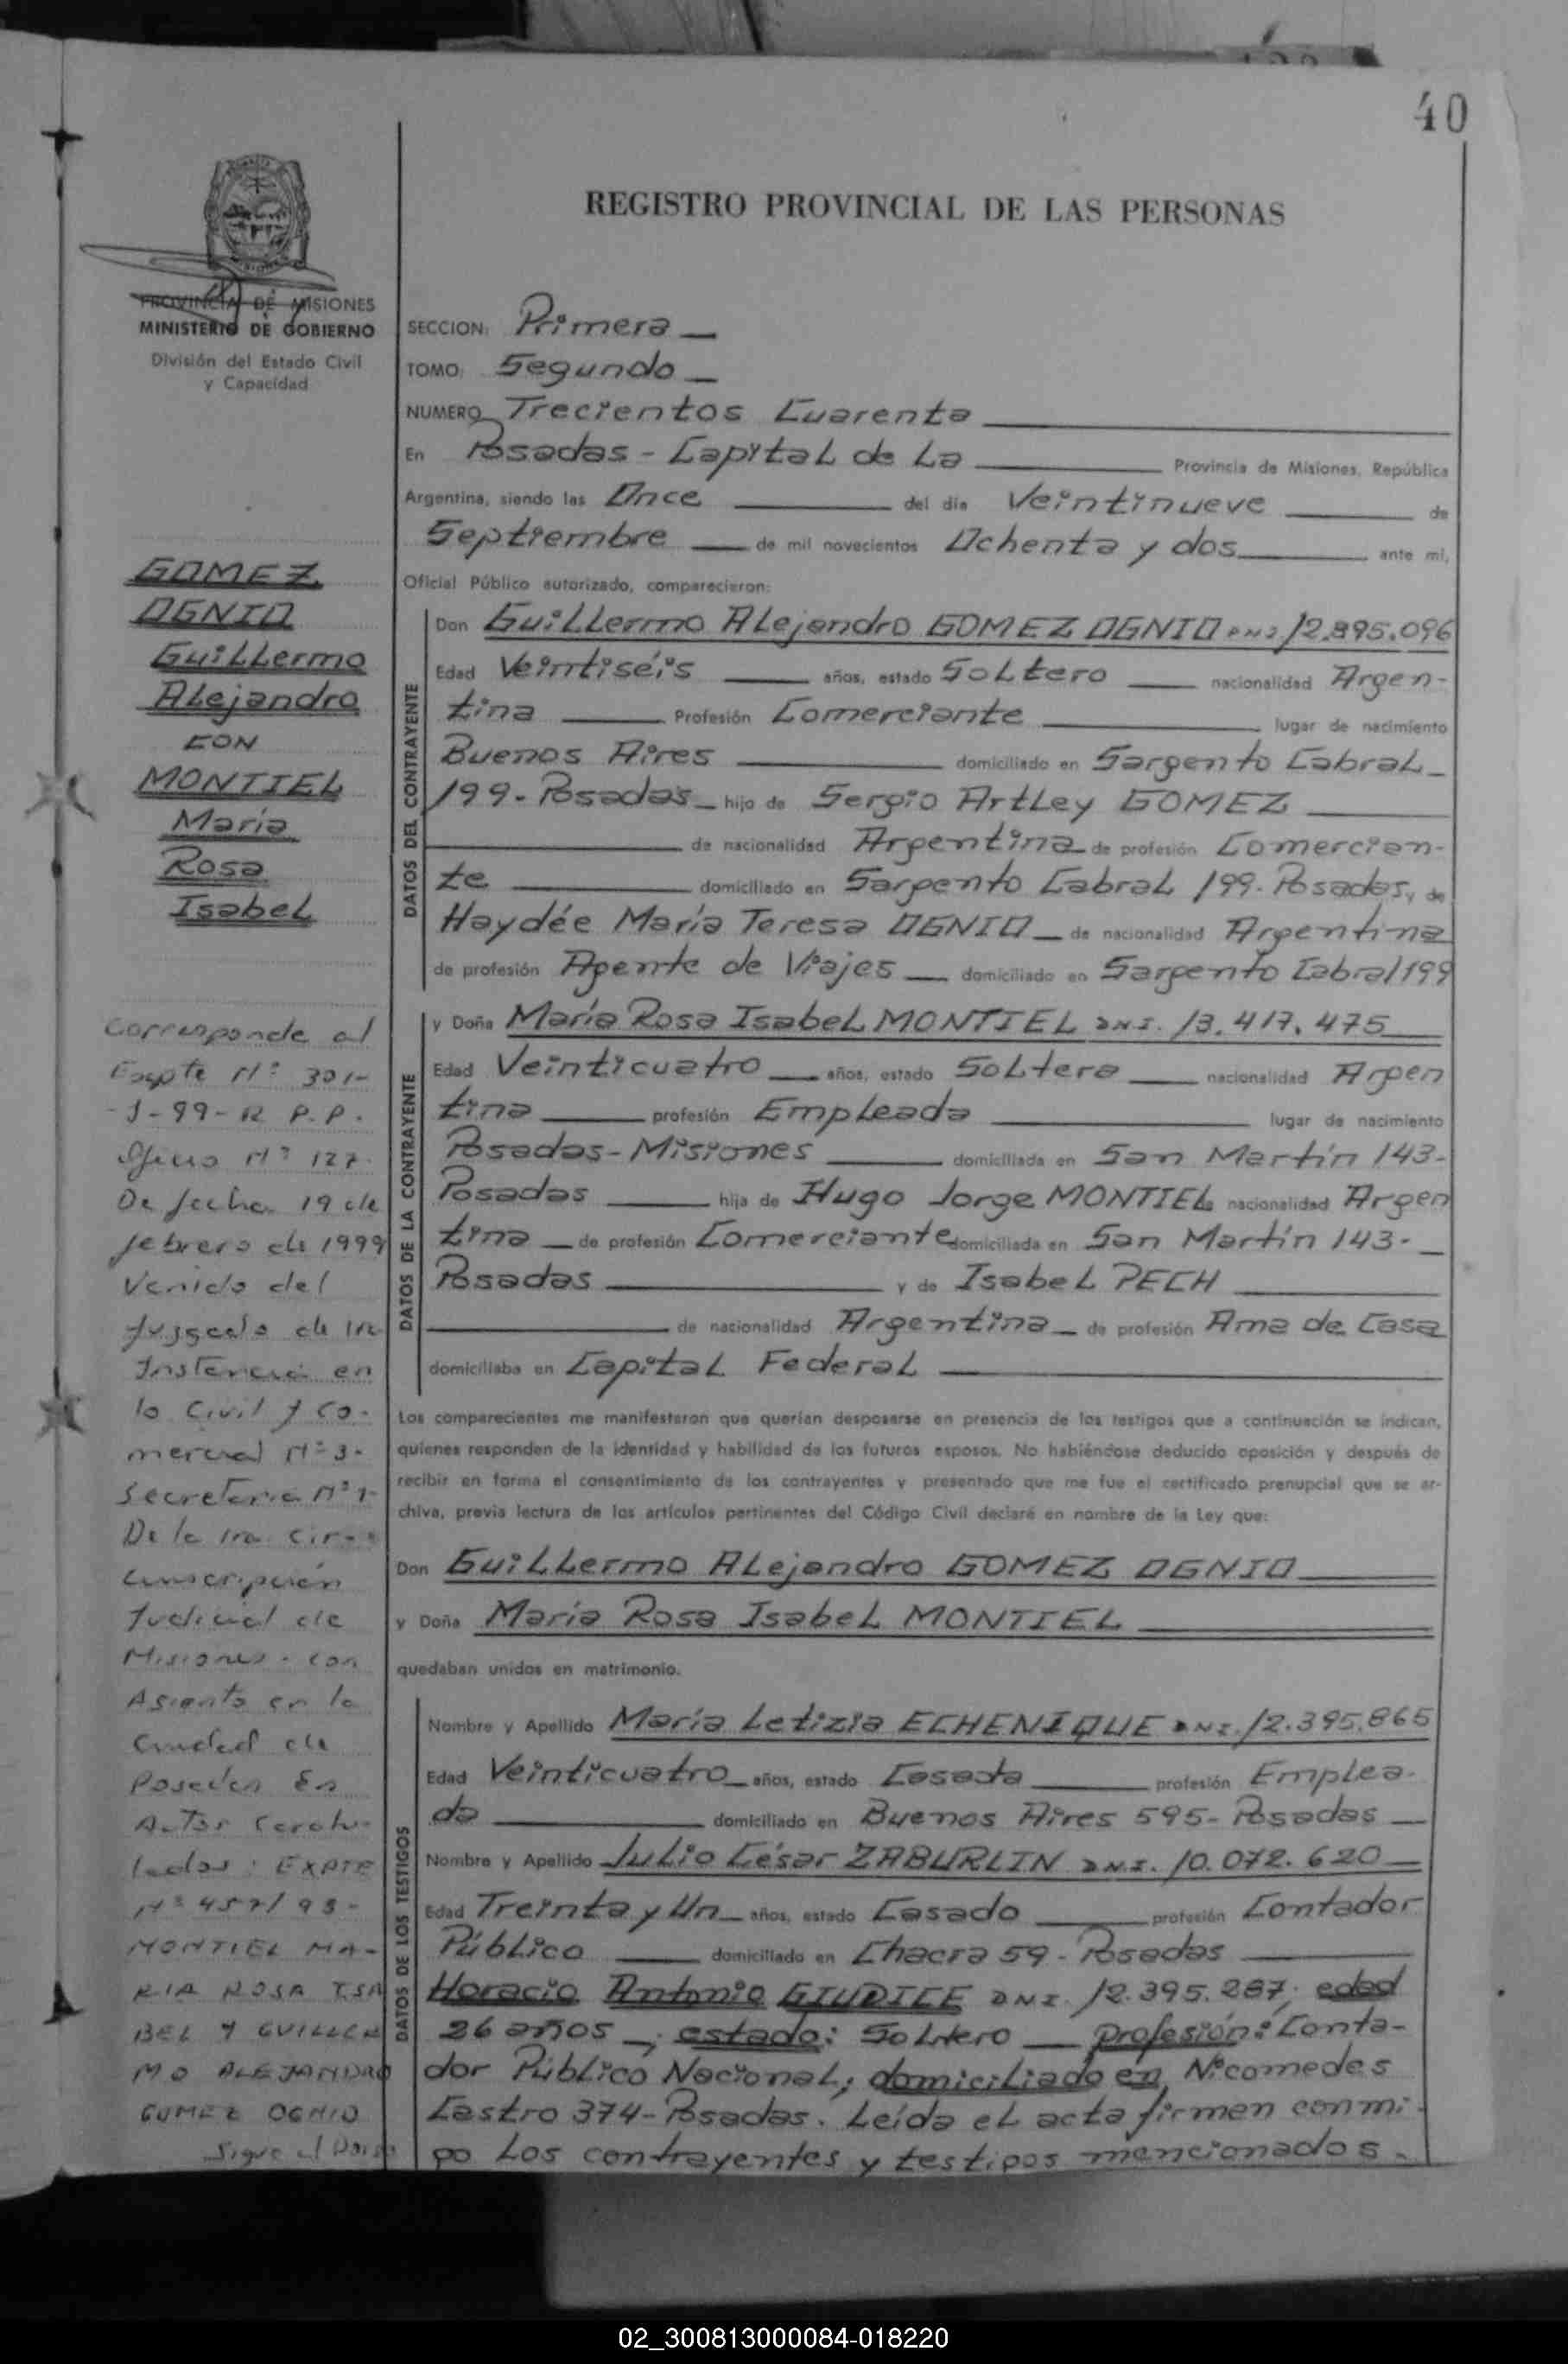 40
REGISTRO PROVINCIAL DE LAS PERSONAS
PROVINCIA DE MISIONES
MINISTERIO DE GOBIERNO
División del Estado Civil
y Capacidad
GOMEZ
OGNIO
Guillermo
Alejandro
CON
MONTIEL
María
Rosa
Isabel
Corresponde al
Expte Nº 301-
P.P.
Oficio Nº 127.
De fecha 19 de
febrero de 1999
Venido del
Juzgado de 1ra
Instancia en
lo Civil y Co-
mercial Nº 3-
Secretaria Nº 1-
De la 1ra. Cir-
cunscripción
Judicial de
Misiones - con
Asiento en la
Ciudad de
Posadas En
Autos Caratu-
lados: EXPTE
MONTIEL MA-
RIA ROSA ISA
BEL Y GUILLER
MO ALEJANDRO
GOMEZ OGNIO
Sigue al Dorso
SECCION: Primera
TOMO: Segundo
NUMERO Trecientos Cuarenta
En Posadas - Capital de La Provincia de Misiones, República
Argentina, siendo las Once del día Veintinueve de
Septiembre de mil novecientos Ochenta y dos ante mí,
Oficial Público autorizado, comparecieron:
DATOS DEL CONTRAYENTE
Don Guillermo Alejandro GOMEZ OGNIO DNI 12.895.096
Edad Veintiséis años, estado Soltero nacionalidad Argen-
tina Profesión Comerciante lugar de nacimiento
Buenos Aires domiciliado en Sargento Cabral
199- Posadas hijo de Sergio Artley GOMEZ
de nacionalidad Argentina de profesión Comercian-
te domiciliado en Sargento Cabral 199- Posadas, y de
Haydée María Teresa OGNIO de nacionalidad Argentina
de profesión Agente de Viajes domiciliado en Sargento Cabral 199
DATOS DE LA CONTRAYENTE
y Doña María Rosa Isabel MONTIEL D.N.I. 13.417.475
Edad Veinticuatro años, estado Soltera nacionalidad Argen
tina profesión Empleada lugar de nacimiento
Posadas-Misiones domiciliada en San Martín 143-
Posadas hija de Hugo Jorge MONTIEL nacionalidad Argen
tina de profesión Comerciante domiciliada en San Martín 143-
Posadas y de Isabel PECH
de nacionalidad Argentina de profesión Ama de Casa
domiciliaba en Capital Federal
Los comparecientes me manifestaron que querían desposarse en presencia de los testigos que a continuación se indican,
quienes responden de la identidad y habilidad de los futuros esposos. No habiéndose deducido oposición y después de
recibir en forma el consentimiento de los contrayentes y presentado que me fue el certificado prenupcial que se ar-
chiva, previa lectura de los artículos pertinentes del Código Civil declaré en nombre de la Ley que:
Don Guillermo Alejandro GOMEZ OGNIO
y Doña María Rosa Isabel MONTIEL
quedaban unidos en matrimonio.
DATOS DE LOS TESTIGOS
Nombre y Apellido María Letizia ECHENIQUE D.N.I. 12.395.865
Edad Veinticuatro años, estado Casada profesión Emplea-
da domiciliado en Buenos Aires 595- Posadas
Nombre y Apellido Julio César ZABURLIN D.N.I. 10.072.620
Edad Treinta y Un años, estado Casado profesión Contador
Público domiciliado en Chacra 59 - Posadas
Horacio Antonio GIUDICE D.N.I. 12.395.287; edad
26 años; estado: Soltero profesión: Conta-
dor Público Nacional; domiciliado en Nicomedes
Castro 374- Posadas. Leída el acta firmen conmi-
go los contrayentes y testigos mencionados.
02_300813000084-018220